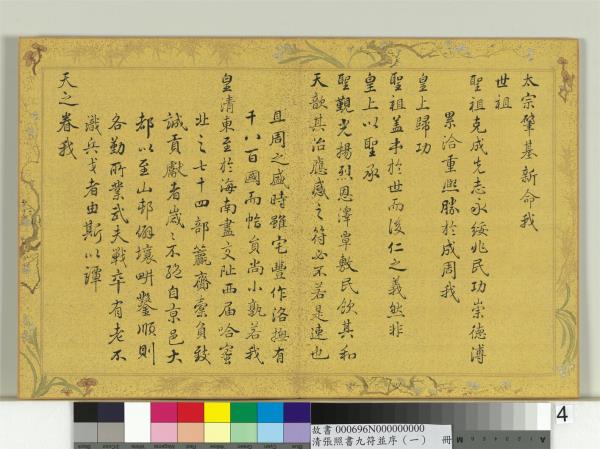 太宗肇基新命我
世祖
聖祖克成先志永綏兆民功崇德溥
累洽重熙勝於成周我
皇上歸功
聖祖蓋本於世而後仁之義然非
皇上以聖承
聖覲光揚烈恩澤覃敷民飲其和
天歆其治應感之符必不若是速也
且周之盛時雖宅豐作洛撫有
千八百國而幅員尚小孰若我
皇清東至於海南盡交阯西届哈蜜
北之七十四部籝齎橐負致
誠貢獻者歲之不絕自京邑大
都以至山邨僻壤畊鑿順則
各勤所業武夫戰卒有老不
識兵戈者由斯以譚
天之眷我
4
故書 000696N000000000
清張照書九符並序(一) 冊